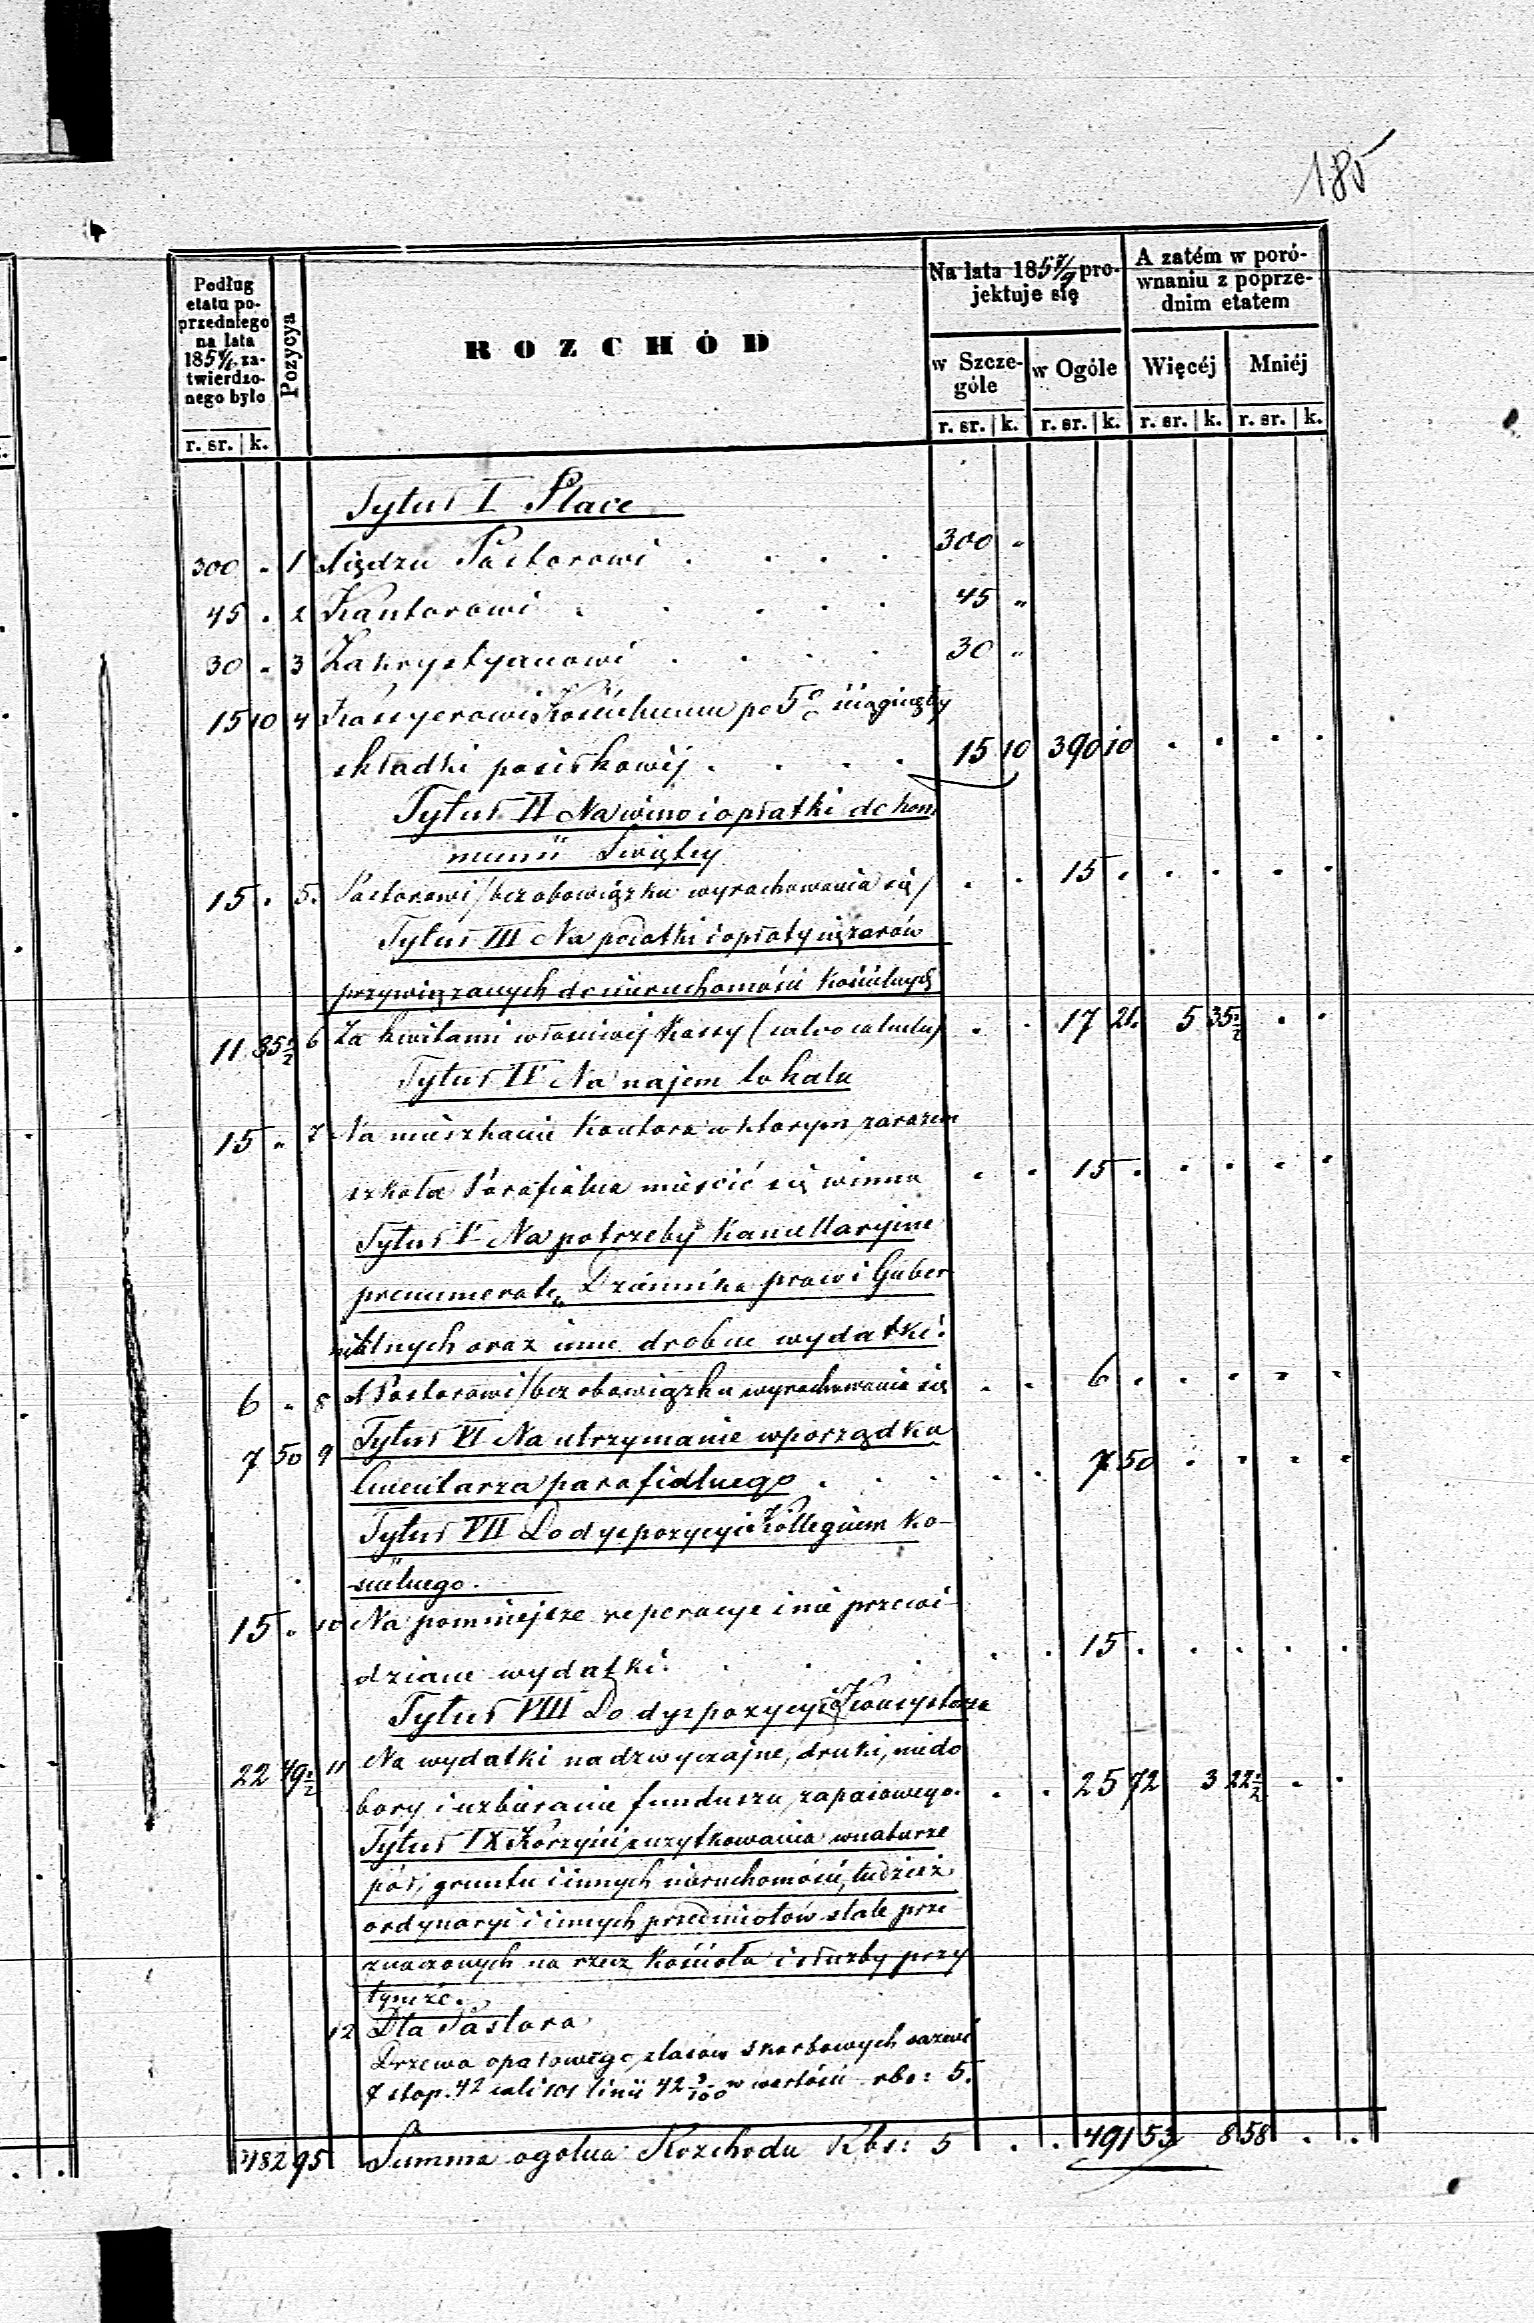 185
Podług etatu poprzedniego na lata 185 4/6 zatwierdzonego było
Pozycya
ROZCHÓD
Na lata 185 7/9 projektuje się
A zatém w porównaniu z poprzednim etatem
w Szczególe
w Ogóle
Więcéj
Mniéj
r. sr. | k. r. sr. | k. r. sr. | k. r. sr. | k. r. sr. | k.
Tytuł I Płace
300 " 1 Xiędzu Pastorowi . . . . 300 "
45 " 2 Kantorowi . . . . 45 "
30 " 3 Zakrystyanowi . . . . 30 "
15 10 4 Kassyerowi Kościelnemu po 5% ściągniętéj
składki posiłkowéj . . . . 15 10 390 10 . . . .
Tytuł II Na wino i opłatki do kom
munii Świętey
15 . 5. Pastorowi /bez obowiązku wyrachowania się/ . . 15 . . . . .
Tytuł III Na podatki i opłaty ciężarów
przywiązanych do nieruchomości Kościelnych
11 85 1/2 6 Za kwitami właściwéj Kassy (salvo calculo) . . 17 21. 5 35 1/2 . .
Tytuł IV Na najem lokalu
15 " 7 Na mieszkanie Kantora w którym zarazem
szkoła Parafialna mieścić się winna . . 15 . . . . .
Tytuł V Na potrzeby Kancellaryjne
prenumeratę Dziennika praw i Guber
nialnych oraz inne drobne wydatki.
6 " 8 Pastorowi /bez obowiązku wyrachowania się . . 6 . . . . .
7 50 9 Tytuł VI Na utrzymanie w porządku
Cmentarza parafialnego . . . . . 7 50 . . . .
Tytuł VII Do dyspozycyi Kollegium Ko-
ścielnego.
15 " 10 Na pomniejsze reperacye i nie przewi-
dziane wydatki. . . . . . 15 . . . . .
Tytuł VIII Do dyspozycyi Konsystorza
22 49 1/2 11 Na wydatki nadzwyczajne, druki, niedo
bory i uzbieranie funduszu zapasowego. . . 25 72 3 22 1/2 . .
Tytuł IX Korzyści z użytkowania w naturze
pól, gruntu i innych nieruchomości, tudzież
ordynaryi i innych przedmiotów stale prze
znaczonych na rzecz Kościoła i służby przy
tymże.
12 Dla Pastora
Drzewa opałowego z lasów skarbowych
7 stop. 42 cali 101 linii 42 3/100 w wartości rbs: 5.
482 95 Summa ogólna Rozchodu Rbs: 5 . . 491 53 8 58 . .